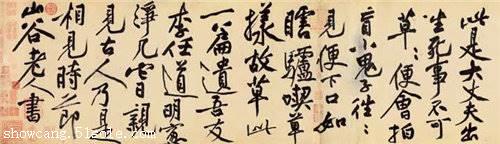 此是大丈夫出
生死事不可
草〻便會拍
盲小鬼子往〻
見便下口如
瞎驢喫草
樣故草此
一篇遺吾友
李任道明窗
淨几它日親
見古人乃是
相見時節
山谷老人書
showcang.51sole.com